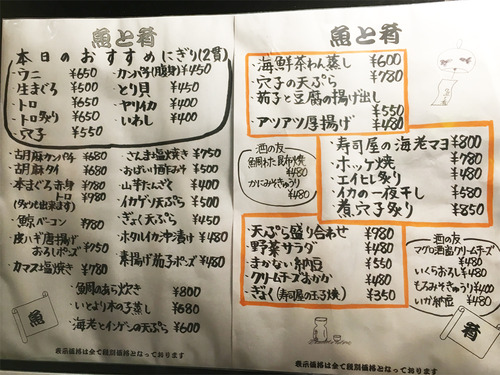 魚と肴
本日のおすすめにぎり(2貫)
・ウニ ¥650
・生まぐろ ¥500
・トロ ¥650
・トロ炙り ¥650
・穴子 ¥550
・カンパチ(腹身) ¥450
・とり貝 ¥450
・ヤリイカ ¥400
・いわし ¥400
・胡麻カンパチ ¥680
・胡麻タイ ¥680
・本まぐろ赤身 ¥780
トロ ¥980
・鯨ベーコン ¥780
・皮ハギ唐揚げ
おろしポン ¥950
・カマス塩焼き ¥780
・さんま塩焼き ¥750
・おばいけ酢みそ ¥500
・山芋たんざく ¥400
・イカゲソ天ぷら ¥500
・ぎょく天ぷら ¥450
・ホタルイカ沖漬け ¥480
・素揚げ茄子ポンズ ¥480
・鯛のあら炊き ¥800
・いとより木の子蒸し ¥680
・海老とインゲンの天ぷら ¥600
魚
表示価格は全て税別価格となっております
魚と肴
・海鮮茶わん蒸し ¥600
・穴子の天ぷら ¥780
・茄子と豆腐の揚げ出し
¥550
・アツアツ厚揚げ ¥480
酒の友
鯛わた昆布焼
¥480
かにみそきゅうり
¥480
・寿司屋の海老マヨ ¥800
・ホッケ焼 ¥780
・エイヒレ炙り ¥480
・イカの一夜干し ¥580
・煮穴子炙り ¥850
・天ぷら盛り合わせ ¥980
・野菜サラダ ¥480
・まかない納豆 ¥550
・クリームチーズおかか ¥480
・ぎょく(寿司屋の玉子焼) ¥350
酒の友
マグロ酒盗クリームチーズ
¥480
いくらおろし ¥480
もろみそきゅうり ¥400
いか納豆 ¥480
肴
表示価格は全て税別価格となっております